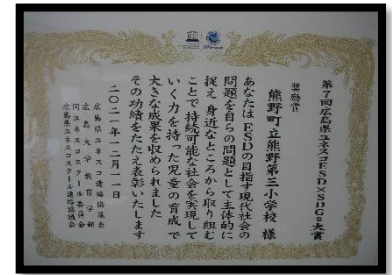 第7回広島県ユネスコESD×SDGs大賞
奨励賞
熊野町立熊野第三小学校 様
あなたは ESDの目指す現代社会の
問題を自らの問題として主体的に
捉え 身近なところから取り組む
ことで持続可能な社会を実現して
いく力を持った児童の育成で
大きな成果を収められました
その功績をたたえ表彰いたします
二〇二一年十二月十一日
広島県ユネスコ連絡協議会
広島大学教育学部
同ユネスコスクール委員会
広島県ユネスコスクール連絡協議会